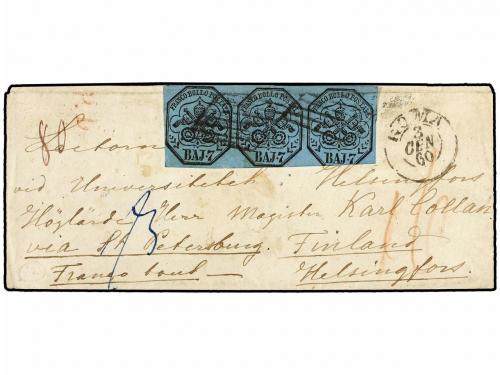 FRANCO BOLLO POSTALE FRANCO BOLLO POSTALE FRANCO BOLLO POSTALE
BAJ.7 BAJ.7 BAJ.7
ROMA
3
GEN
60
vid Universitetet. Helsingfors
Herr Magister Karl Collan
via St Petersburg. Finland
Franco tout — Helsingfors.